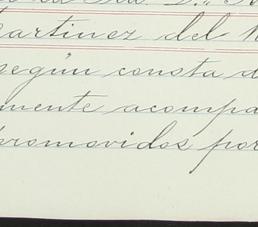 artinez del
según consta d
mente acompa
promovidos por